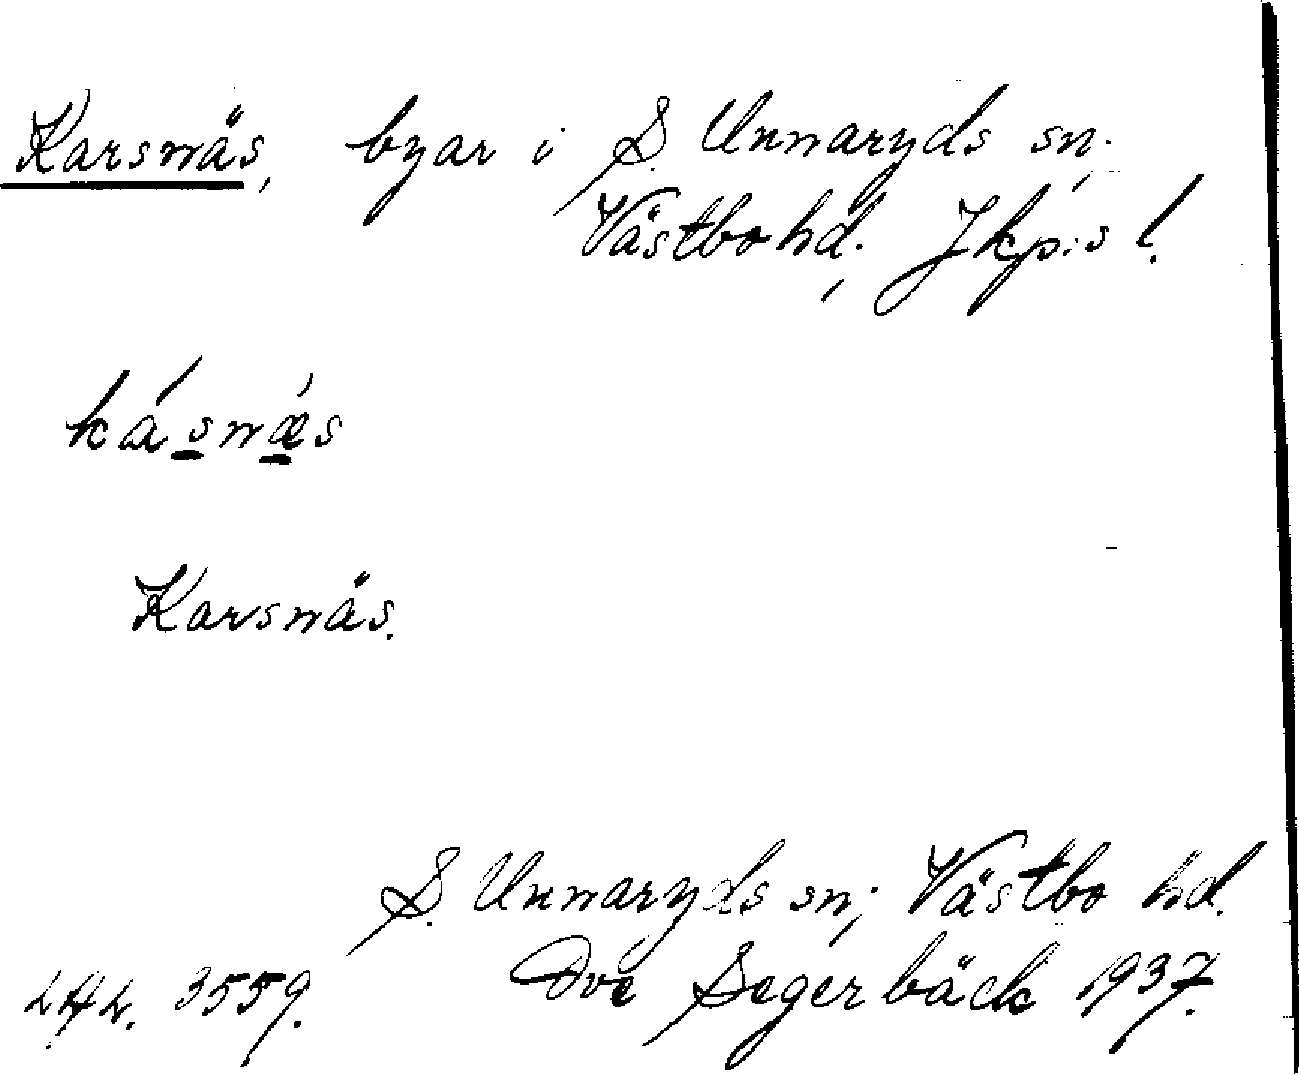 Karsnäs, byar i S. Unnaryds sn.,
Västbo hd., Jkp:s l.
ká̱sṉæ̀s
Karsnäs.
S. Unnaryds sn; Västbo hd.
LAL. 3559. Ove Segerbäck 1937.